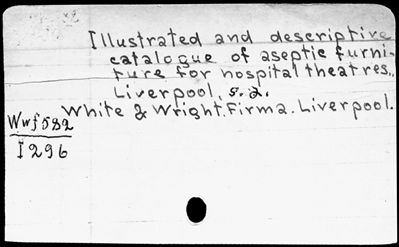 Illustrated and descriptive
catalogue of aseptic furni-
ture for hospital theatres.,
Liverpool, s.a.
White & Wright. Firma. Liverpool.
Wwf582
I296